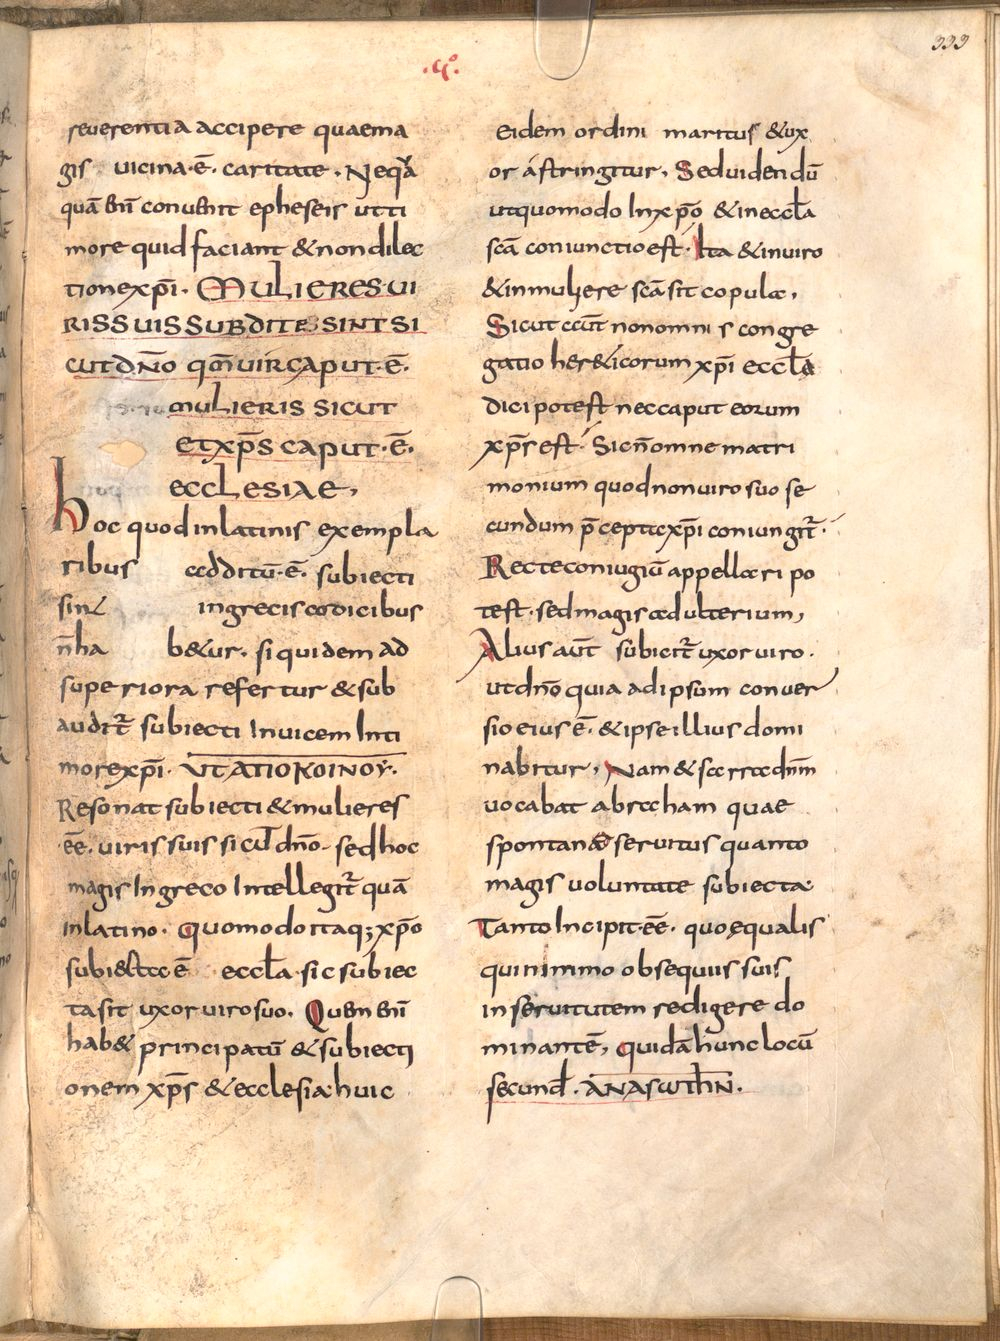 333
.q.
reverentia accipere quaema
gis uicina·ē· caritate. Neqᷓ
quā bn̄ conuenit epheseis ut ti
more quid faciant & non dilec
tionexp̄i. MULIERES UI
RIS SUIS SUBDITE SINT SI
CUT DN̄O qm̄ uir CAPUT·Ē·
MULIERIS SICUT
ET XP̄S CAPUT·Ē·
ECCLESIAE,
hoc quod in latinis exempla
ribus additū·ē· subiecti
sint in grecis codicibus
n̄ ha b&ur. si quidem ad
superiora refertur & sub
auditr̄ subiecti Inuicem In ti
morexp̄i. UT ΑΠΟΚΟΙΝΟΥ.
Resonat subiecti & mulieres
·ēē· uiris suis sicut̄ dn̄o. sed hoc
magis In greco Intellegitr̄ quā
In latino. Quomodo itaq; xp̄o
subiecta ē eccl̄a sic subiec
ta sit uxor uiro suo. Quem en̄
hab& principatū & subiecti
onem xp̄s & ecclesia huic
eidem ordini maritus & ux
or ástringitur. Sed uidendū
ut quomodo In xp̄o & in eccl̄a
scā coniunctio est. Ita & in uiro
& in muliere scā sit copula,
Sicut aut̄ non omnis congre
gatio her&icorum xp̄i eccl̄a
dici potest nec caput eorum
xp̄s est. Sic n̄ omne matri
monium quod non uiro suo se
cundum p̄cepta xp̄i coniungitr̄.
Recte coniugiū appellari po
test. sed magis adulterium,
Alius aūt subicitr̄ uxor uiro.
ut dn̄o quia ad ipsum conuer
sio eius ē. & ipse illius domi
nabitur, Nam & sarra dnm̄
uocabat abraham quae
spontanea seruitus quanto
magis uoluntate subiecta
Tanto Incipit·ēē· quo ęqualis
quinimmo obsequiis suis
in seruitutem redigere do
minantē, quidā hunc locū
secund̄. ΑΝΑΓΩΓΗΝ.